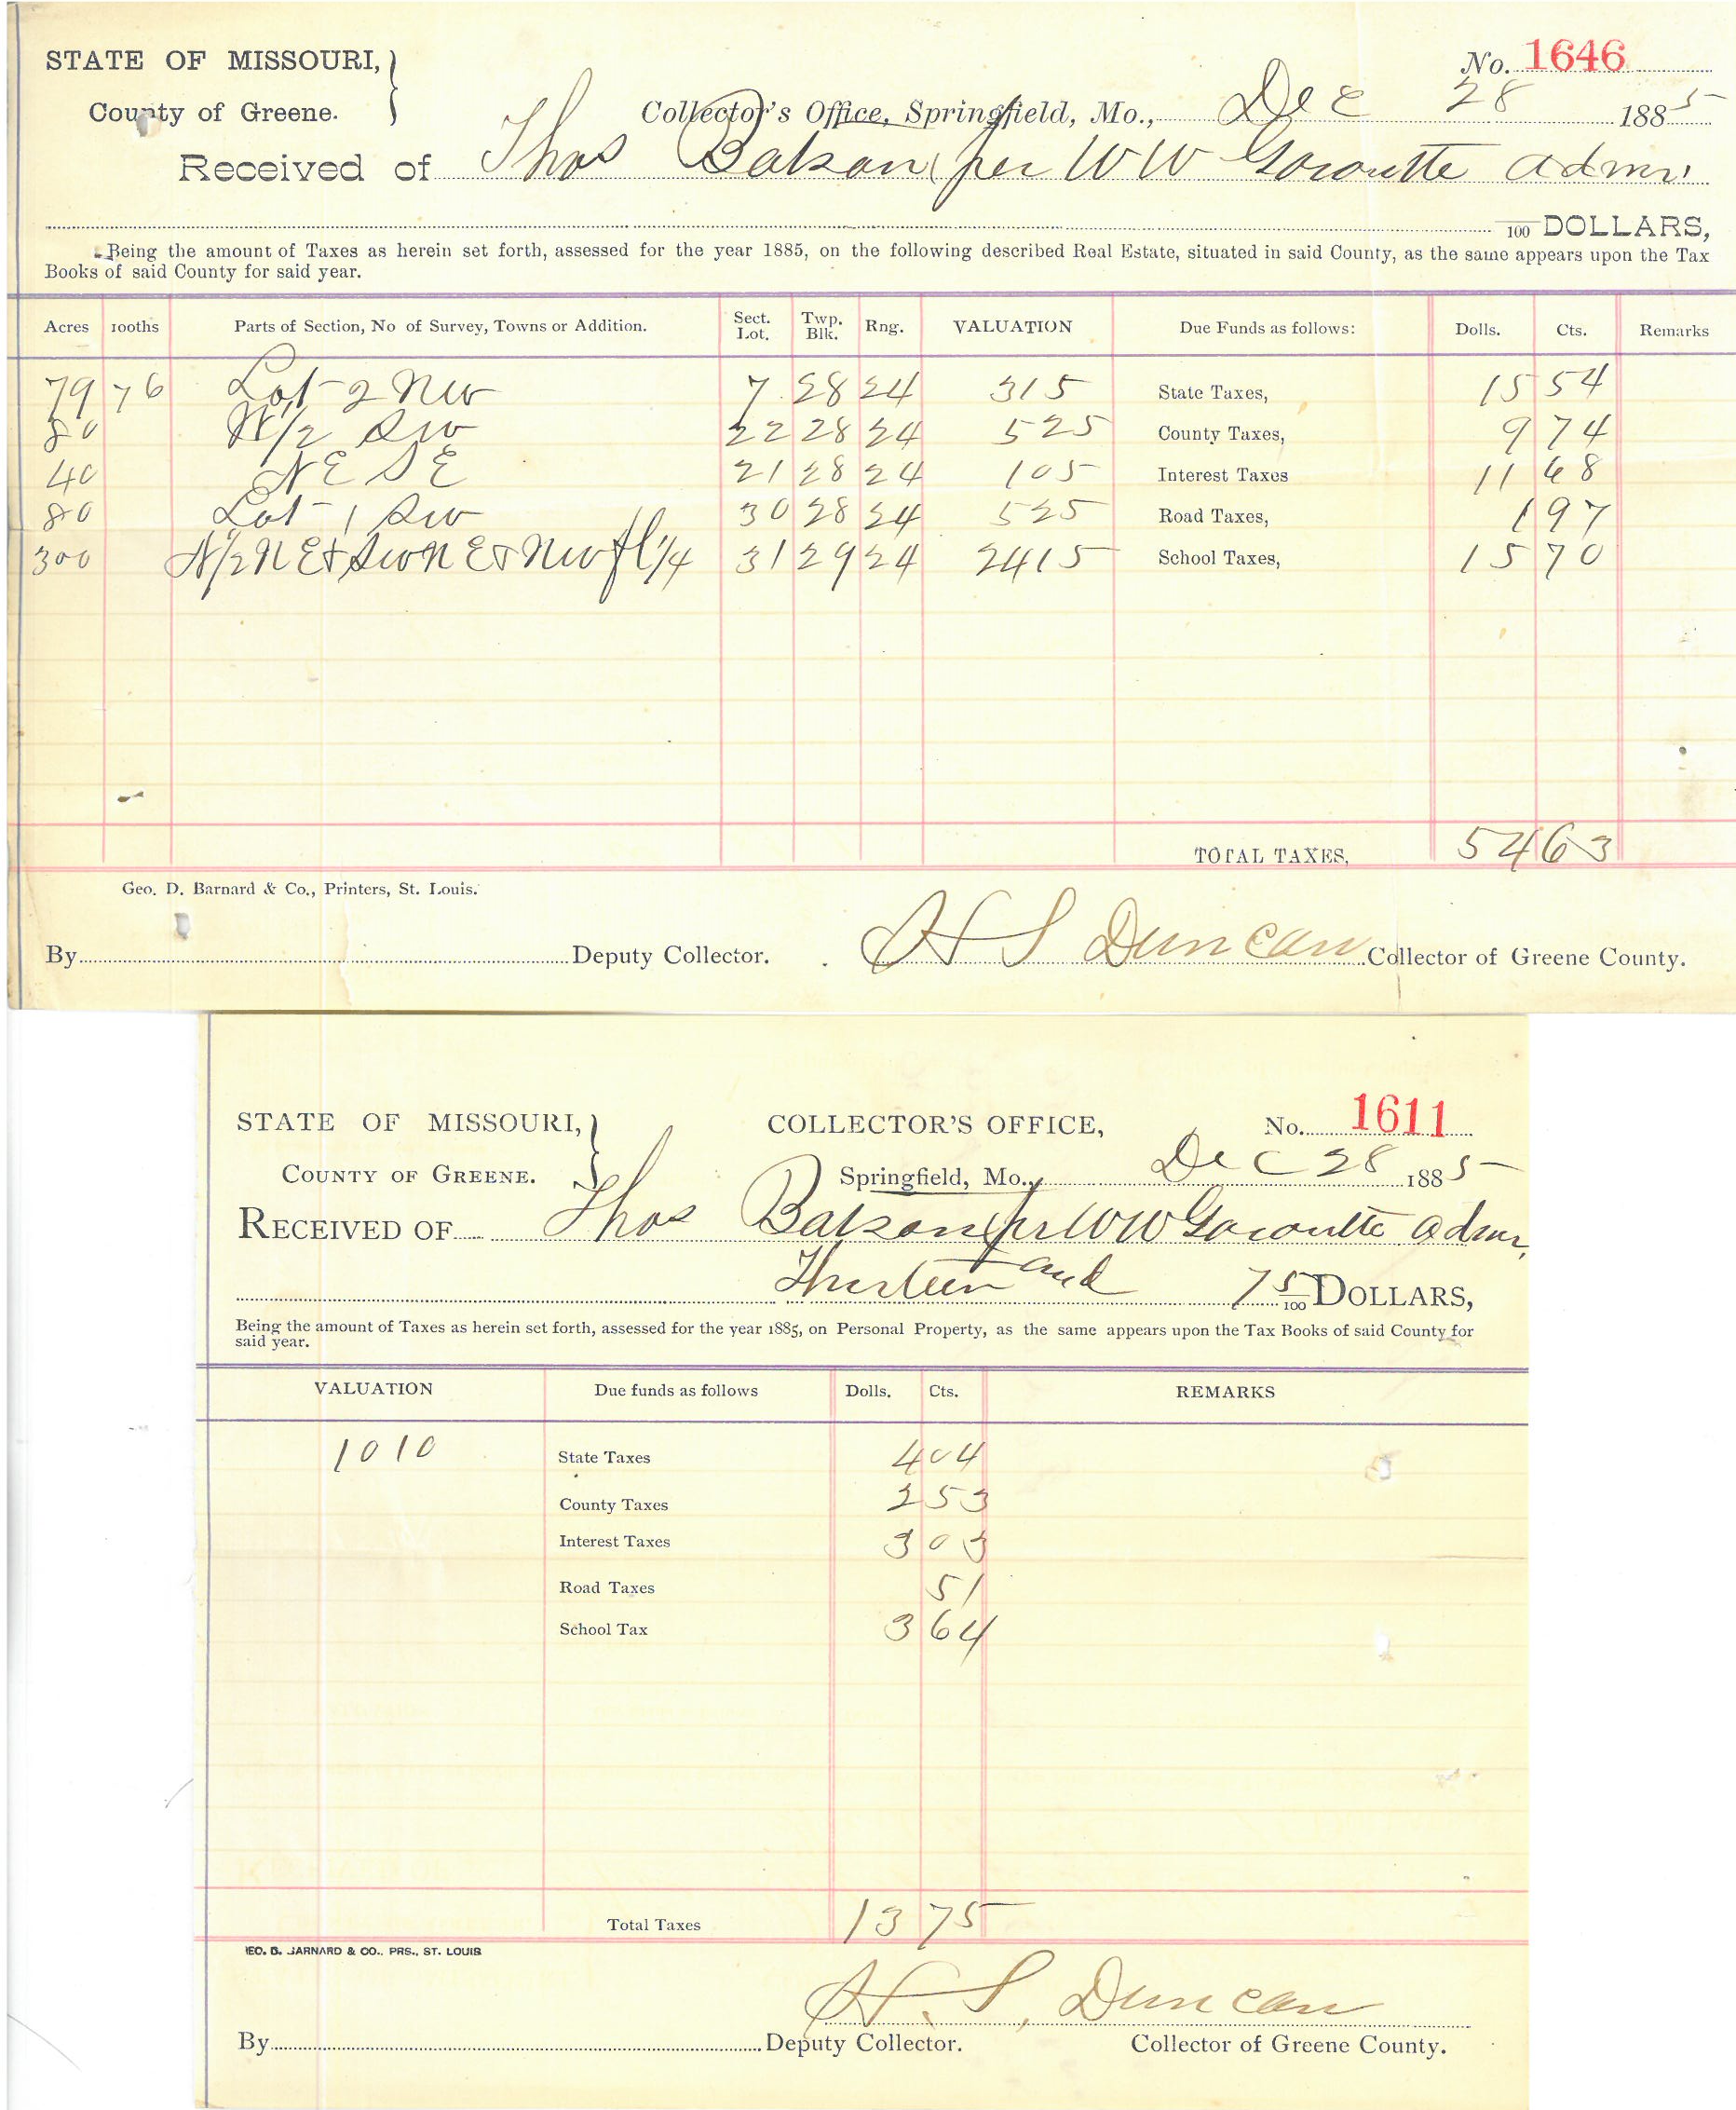 STATE OF MISSOURI, No. 1646
County of Greene. Collector's Office, Springfield, Mo., Dec 28 1885
Received of Thos Batson per WW Goroutte admr.
100 DOLLARS,
Being the amount of Taxes as herein set forth, assessed for the year 1885, on the following described Real Estate, situated in said County, as the same appears upon the Tax
Books of said County for said year.
Acres 100ths Parts of Section, No of Survey, Towns or Addition. Sect. Lot. Twp. Blk. Rng. VALUATION Due Funds as follows: Dolls. Cts. Remarks
79 76 Lot 2 NW 7 28 24 315 State Taxes, 15 54
80 W 1/2 SW 22 28 24 525 County Taxes, 9 74
40 NE SE 21 28 24 105 Interest Taxes 11 68
80 Lot 1 SW 30 28 24 525 Road Taxes, 1 97
300 N 1/2 NE & SW NE & NW fl 1/4 31 29 24 2415 School Taxes, 15 70
TOTAL TAXES, 54 63
Geo. D. Barnard & Co., Printers, St. Louis.
By Deputy Collector. H S Duncan Collector of Greene County.
STATE OF MISSOURI, COLLECTOR'S OFFICE, No. 1611
COUNTY OF GREENE. Springfield, Mo., Dec 28 1885
RECEIVED OF Thos Batson per WW Goroutte admr,
Thirteen and 75/100 DOLLARS,
Being the amount of Taxes as herein set forth, assessed for the year 1885, on Personal Property, as the same appears upon the Tax Books of said County for
said year.
VALUATION Due funds as follows Dolls. Cts. REMARKS
1010 State Taxes 4 04
County Taxes 2 53
Interest Taxes 3 03
Road Taxes 51
School Tax 3 64
Total Taxes 13 75
GEO. D. BARNARD & CO., PRS., ST. LOUIS
H. S. Duncan
By Deputy Collector. Collector of Greene County.